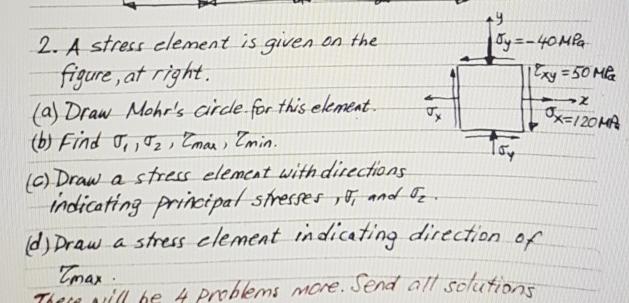 2. A stress element is given on the
figure, at right.
(a) Draw Mohr's circle for this element.
(b) Find σ1, σ2, τmax, τmin.
(c) Draw a stress element with directions
indicating principal stresses, σ1 and σ2.
(d) Draw a stress element indicating direction of
τmax.
There will be 4 problems more. Send all solutions
y
σy=-40MPa
τxy=50MPa
x
σx=120MPa
σx
σy